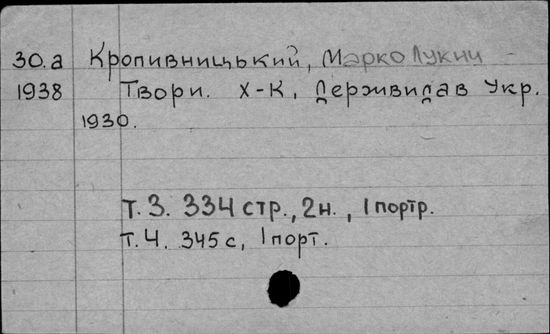 30.а Кропивницький, Марко Лукич
1938 Твори. Х-К, Держвидав Укр.
1930.
т. 3. 334 стр., 2н., 1 портр.
т. 4. 345 с, 1 порт.